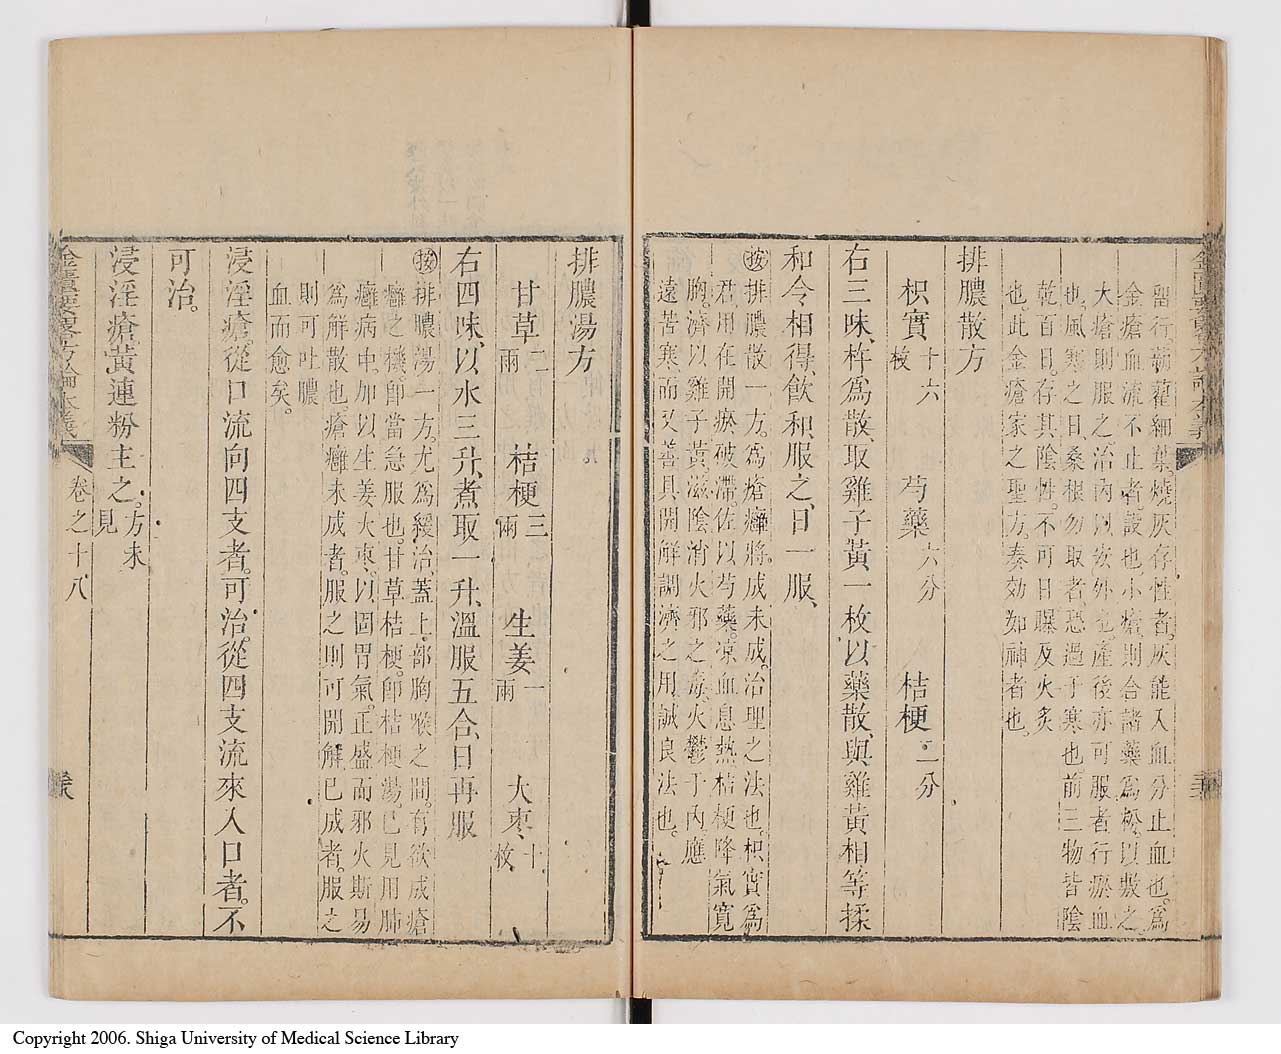 聖行蒴藋細葉燒灰存性者灰能入血分止血也爲
金瘡血流不止者設也小瘡則合諸藥爲粉以敷之
大瘡則服之治內以安外也產後亦可服者行瘀血
也風寒之日桑根勿取者恐過于寒也前三物皆陰
乾百日存其陰性不可日曝及火炙
也此金瘡家之聖方奏効如神者也
排膿散方
枳實十六枚 芍藥六分 桔梗二分
右三味杵爲散取雞子黃一枚以藥散與雞黃相等揉
和令相得飲和服之日一服
按排膿散一方爲瘡癰將成未成治理之法也枳實爲
君用在開瘀破滯佐以芍藥凉血息熱桔梗降氣寬
胸濟以雞子黃滋陰消火邪之毒火鬱于內應
遠苦寒而又善具開解調濟之用誠良法也
排膿湯方
甘草二兩 桔梗三兩 生姜一兩 大枣十枚
右四味以水三升煮取一升溫服五合日再服
按排膿湯一方尤爲緩治蓋上部胸喉之間有欲成瘡
癰之機即當急服也甘草桔梗即桔梗湯已見用肺
癰病中加以生姜大枣以固胃氣正盛而邪火斯易
爲解散也瘡癰未成者服之則可開解已成者服之
則可吐膿
血而愈矣
浸淫瘡從口流向四支者可治從四支流來入口者不
可治
浸淫瘡黃連粉主之方未見
金匱要畧方論本義 卷之十八